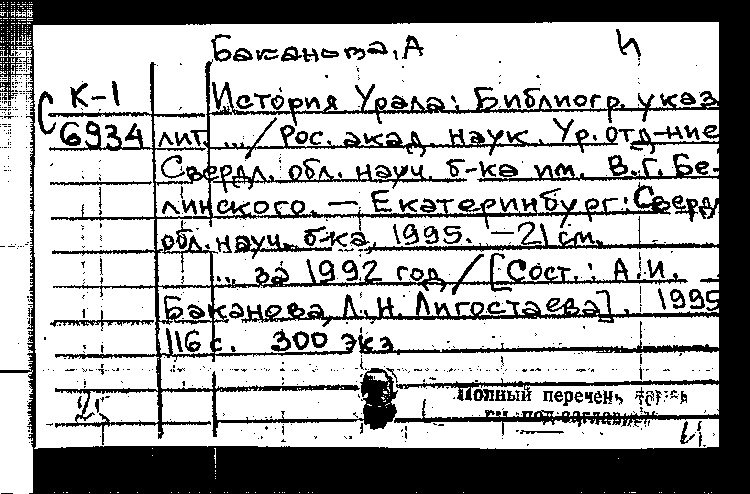 Баканова, А И
С К-1 История Урала: Библиогр. указ
6934 лит. ... / Рос. акад. наук. Ур. отд-ние
Свердл. обл. науч. б-ка им. В.Г. Бе-
линского. — Екатеринбург: Сверд
обл. науч. б-ка, 1995. — 21 см.
... за 1992 год / [Сост.: А.И.
Баканова, Л.Н. Лигостаева]. 1995
116 с. 300 экз.
Полный перечень
25 под заглавием
И